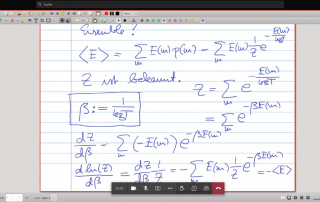 Ensemble!
<E> = ∑_m E(m)·p(m) = ∑_m E(m) 1/Z e^{-E(m)/k_BT}
Z ist bekannt. Z = ∑_m e^{-E(m)/k_BT}
β := 1/k_BT = ∑_m e^{-βE(m)}
dZ/dβ = ∑_m (-E(m)) e^{-βE(m)}
dln(Z)/dβ = dZ/dβ 1/Z = -∑_m E(m) 1/Z e^{-βE(m)} = -<E>